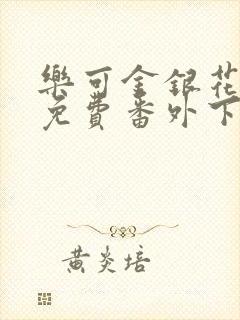 樂可金銀花
免費番外下
黃炎培